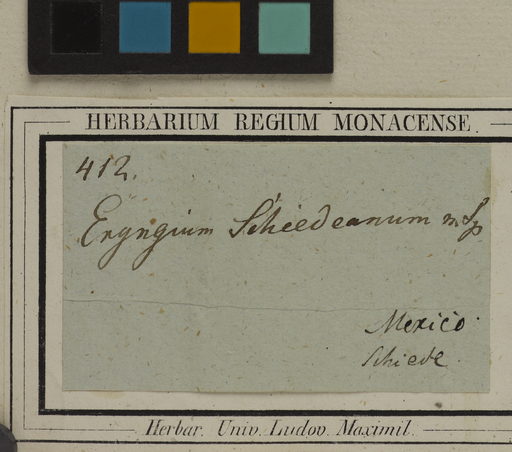 HERBARIUM REGIUM MONACENSE.
412.
Eryngium Schiedeanum
Mexico.
Schiede.
Herbar. Univ. Ludov. Maximil.